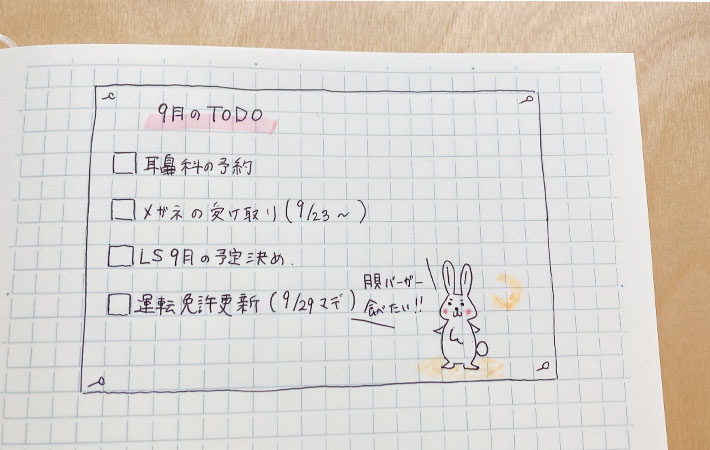 9月のTODO
□ 耳鼻科の予約
□ メガネの受け取り(9/23〜)
□ LS 9月の予定決め.
□ 運転免許更新(9/29マデ)
月見バーガー
食べたい!!